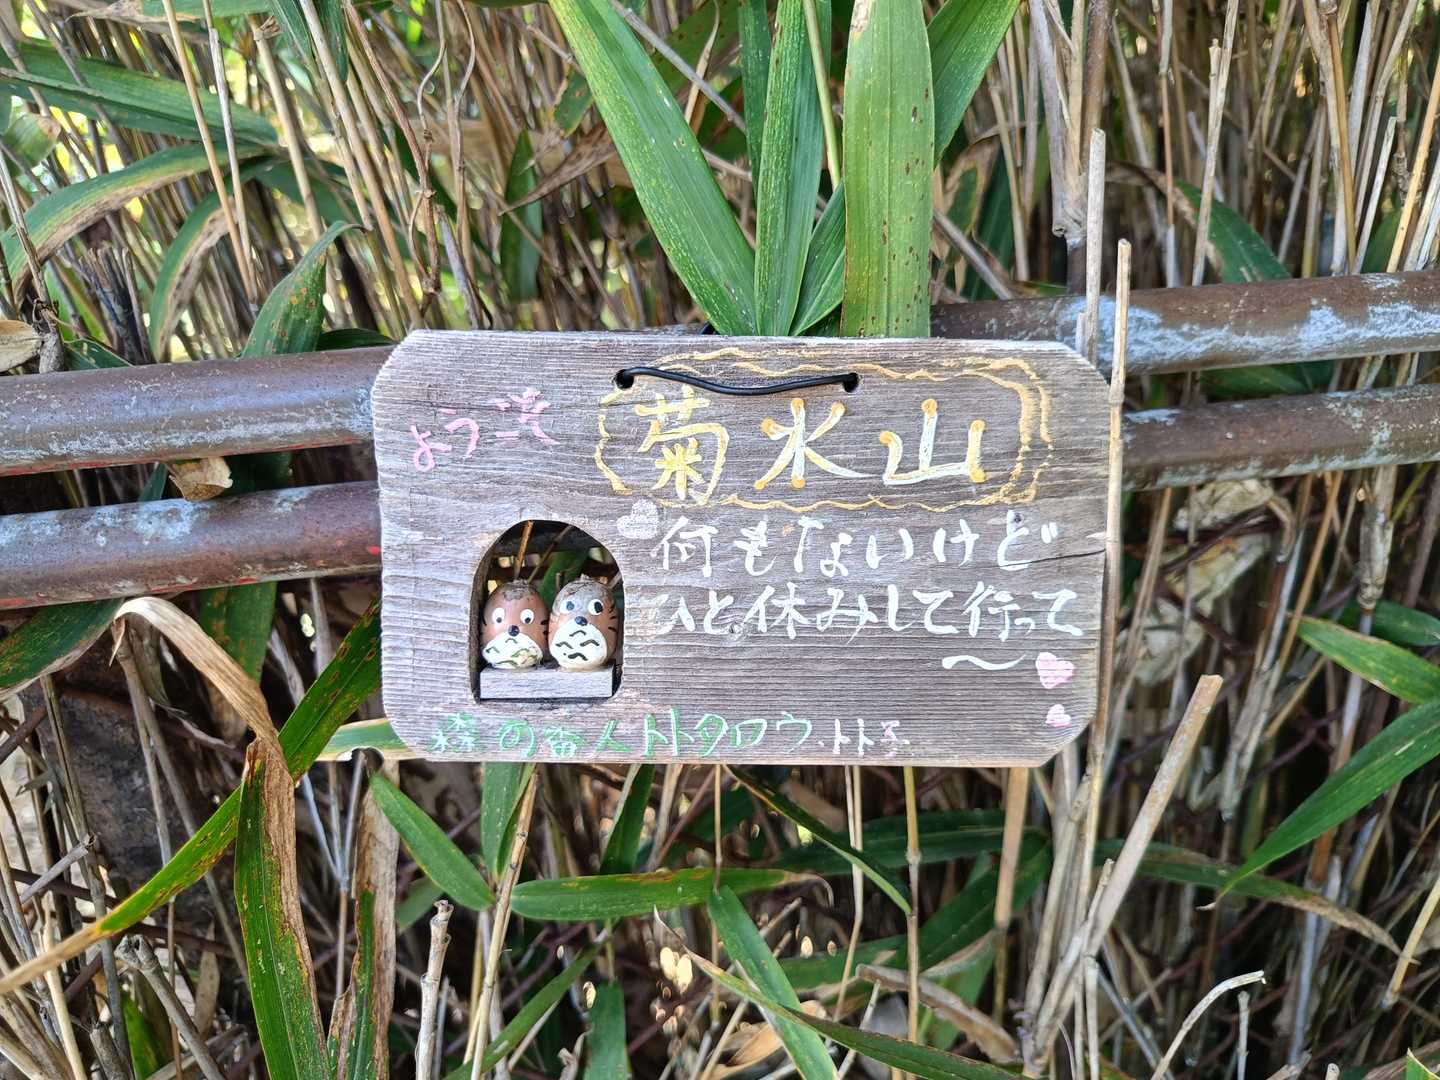 ようこそ
菊水山
何もないけど
ひと休みして行って
〜
森の番人トトタロウ.トト子